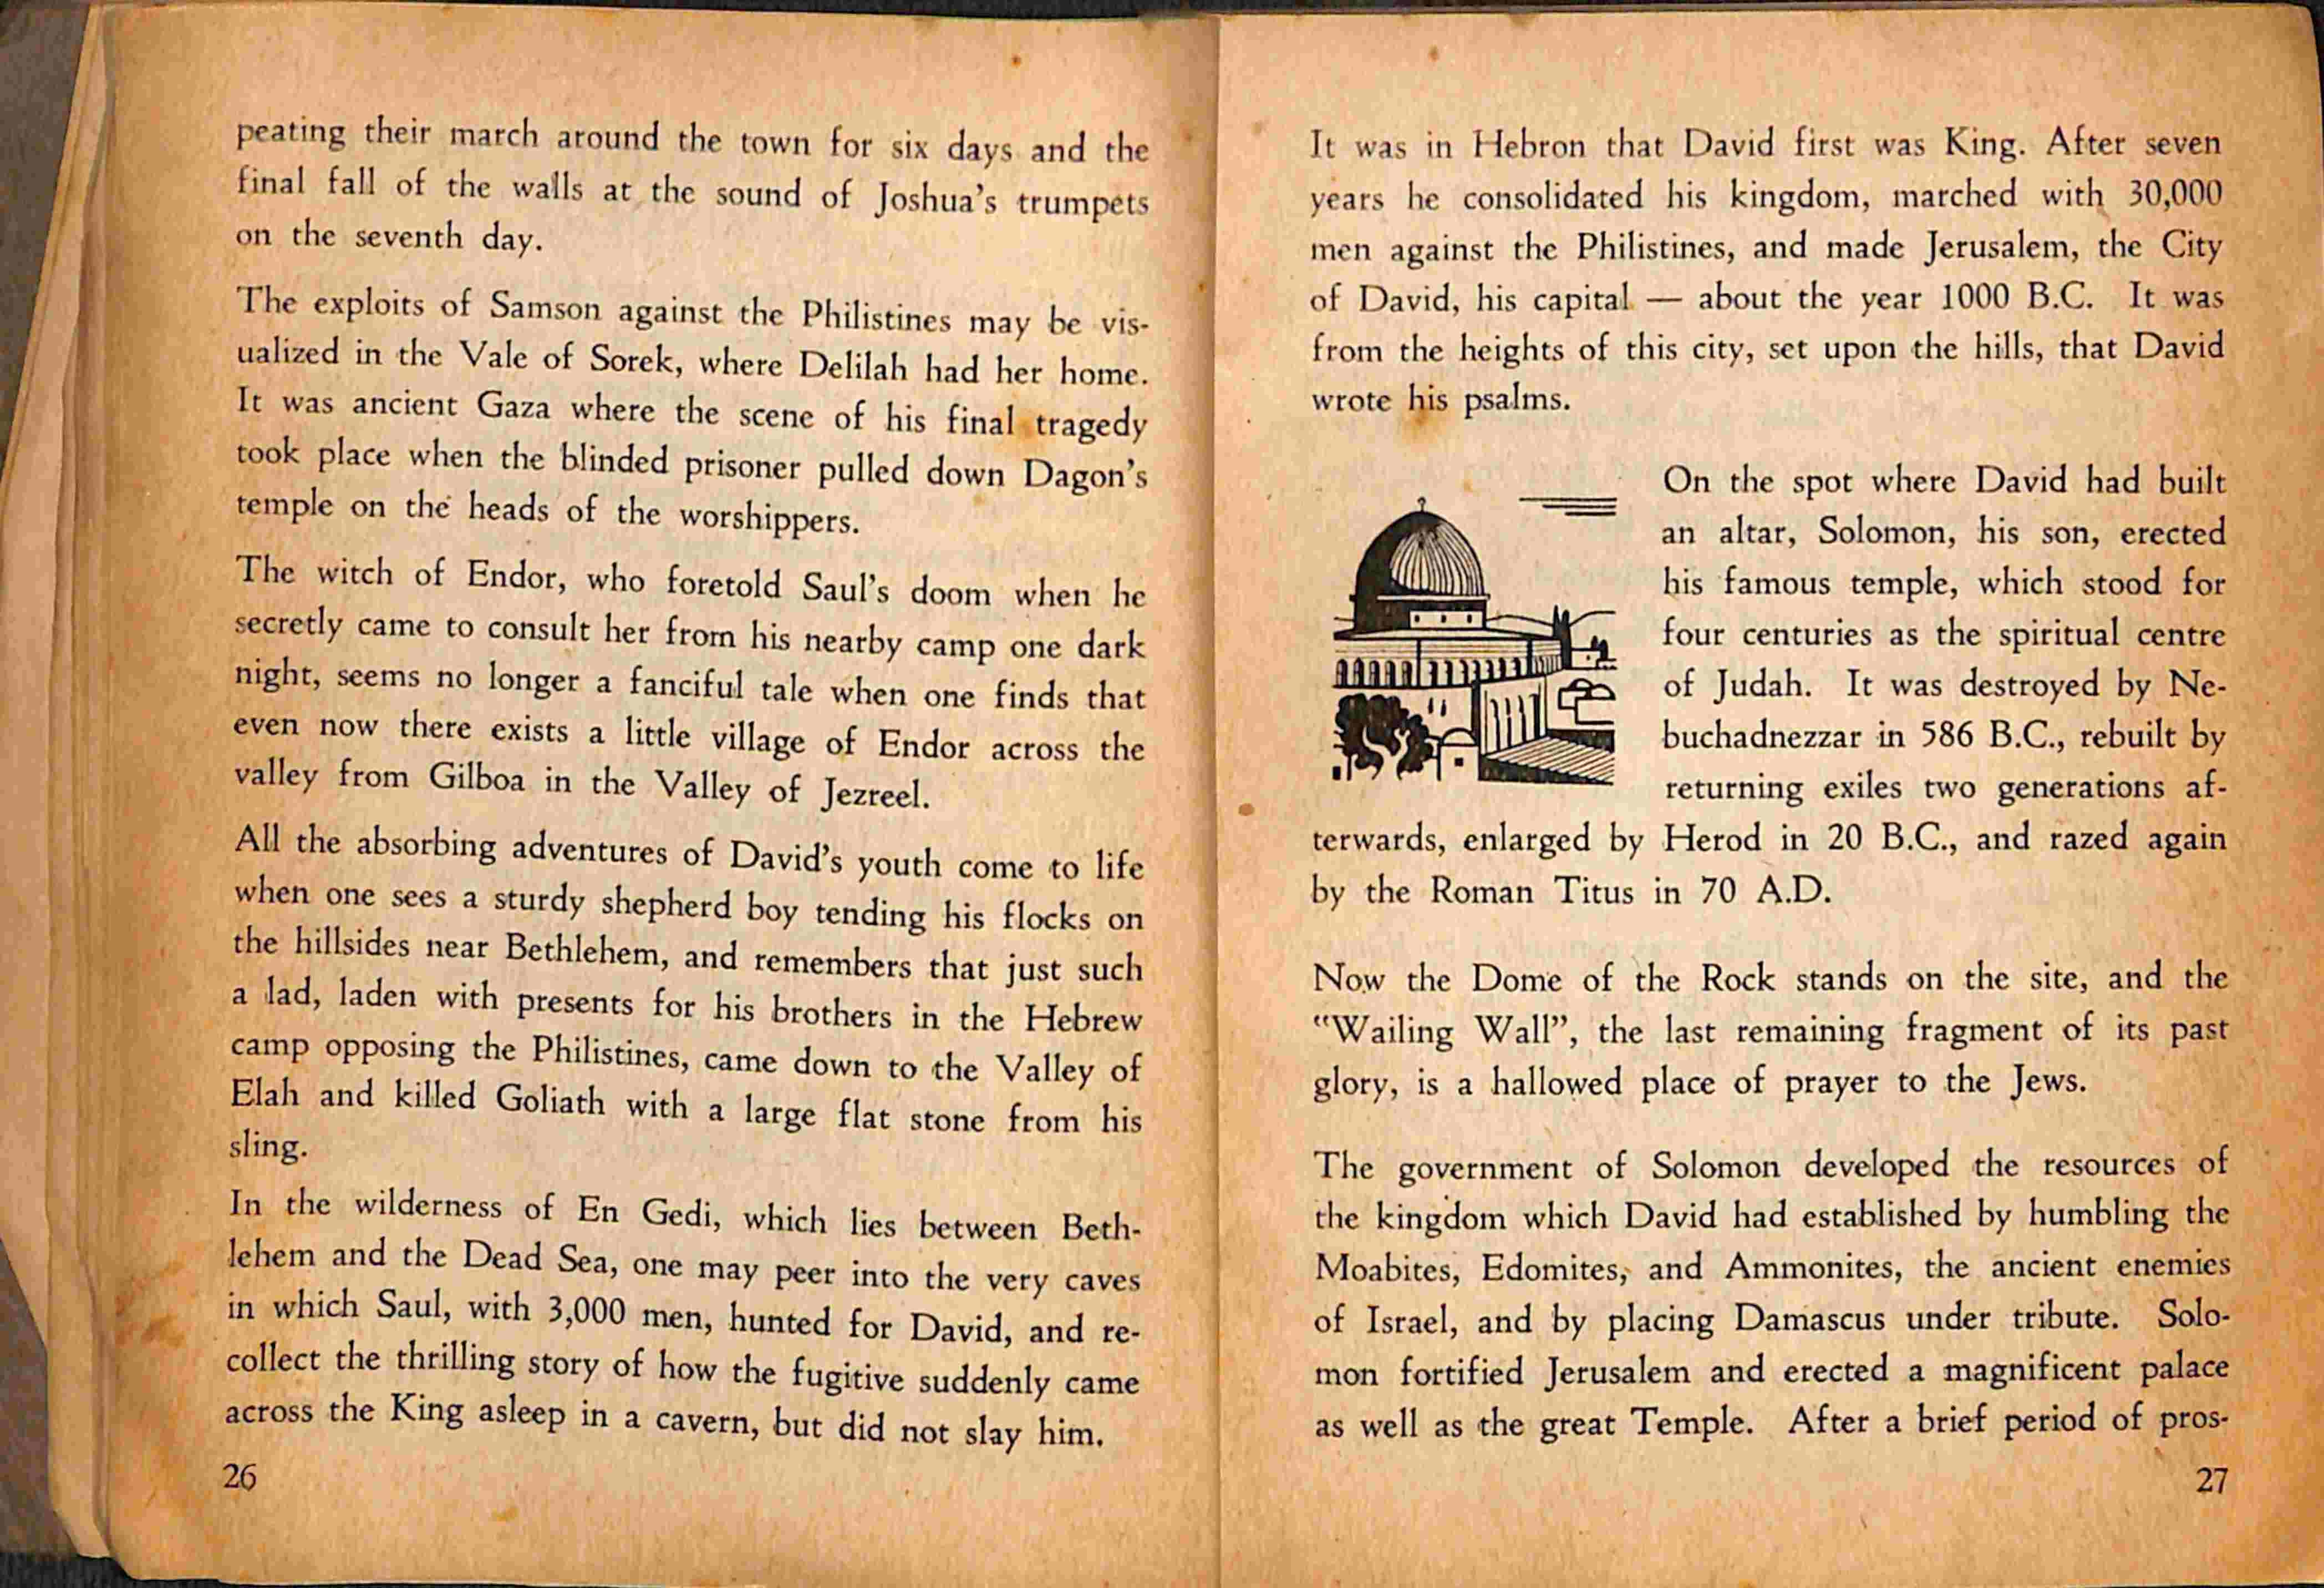 peating their march around the town for six days and the
final fall of the walls at the sound of Joshua's trumpets
on the seventh day.
The exploits of Samson against the Philistines may be vis-
ualized in the Vale of Sorek, where Delilah had her home.
It was ancient Gaza where the scene of his final tragedy
took place when the blinded prisoner pulled down Dagon's
temple on the heads of the worshippers.
The witch of Endor, who foretold Saul's doom when he
secretly came to consult her from his nearby camp one dark
night, seems no longer a fanciful tale when one finds that
even now there exists a little village of Endor across the
valley from Gilboa in the Valley of Jezreel.
All the absorbing adventures of David's youth come to life
when one sees a sturdy shepherd boy tending his flocks on
the hillsides near Bethlehem, and remembers that just such
a lad, laden with presents for his brothers in the Hebrew
camp opposing the Philistines, came down to the Valley of
Elah and killed Goliath with a large flat stone from his
sling.
In the wilderness of En Gedi, which lies between Beth-
lehem and the Dead Sea, one may peer into the very caves
in which Saul, with 3,000 men, hunted for David, and re-
collect the thrilling story of how the fugitive suddenly came
across the King asleep in a cavern, but did not slay him.
26
It was in Hebron that David first was King. After seven
years he consolidated his kingdom, marched with 30,000
men against the Philistines, and made Jerusalem, the City
of David, his capital — about the year 1000 B.C. It was
from the heights of this city, set upon the hills, that David
wrote his psalms.
On the spot where David had built
an altar, Solomon, his son, erected
his famous temple, which stood for
four centuries as the spiritual centre
of Judah. It was destroyed by Ne-
buchadnezzar in 586 B.C., rebuilt by
returning exiles two generations af-
terwards, enlarged by Herod in 20 B.C., and razed again
by the Roman Titus in 70 A.D.
Now the Dome of the Rock stands on the site, and the
"Wailing Wall", the last remaining fragment of its past
glory, is a hallowed place of prayer to the Jews.
The government of Solomon developed the resources of
the kingdom which David had established by humbling the
Moabites, Edomites, and Ammonites, the ancient enemies
of Israel, and by placing Damascus under tribute. Solo-
mon fortified Jerusalem and erected a magnificent palace
as well as the great Temple. After a brief period of pros-
27